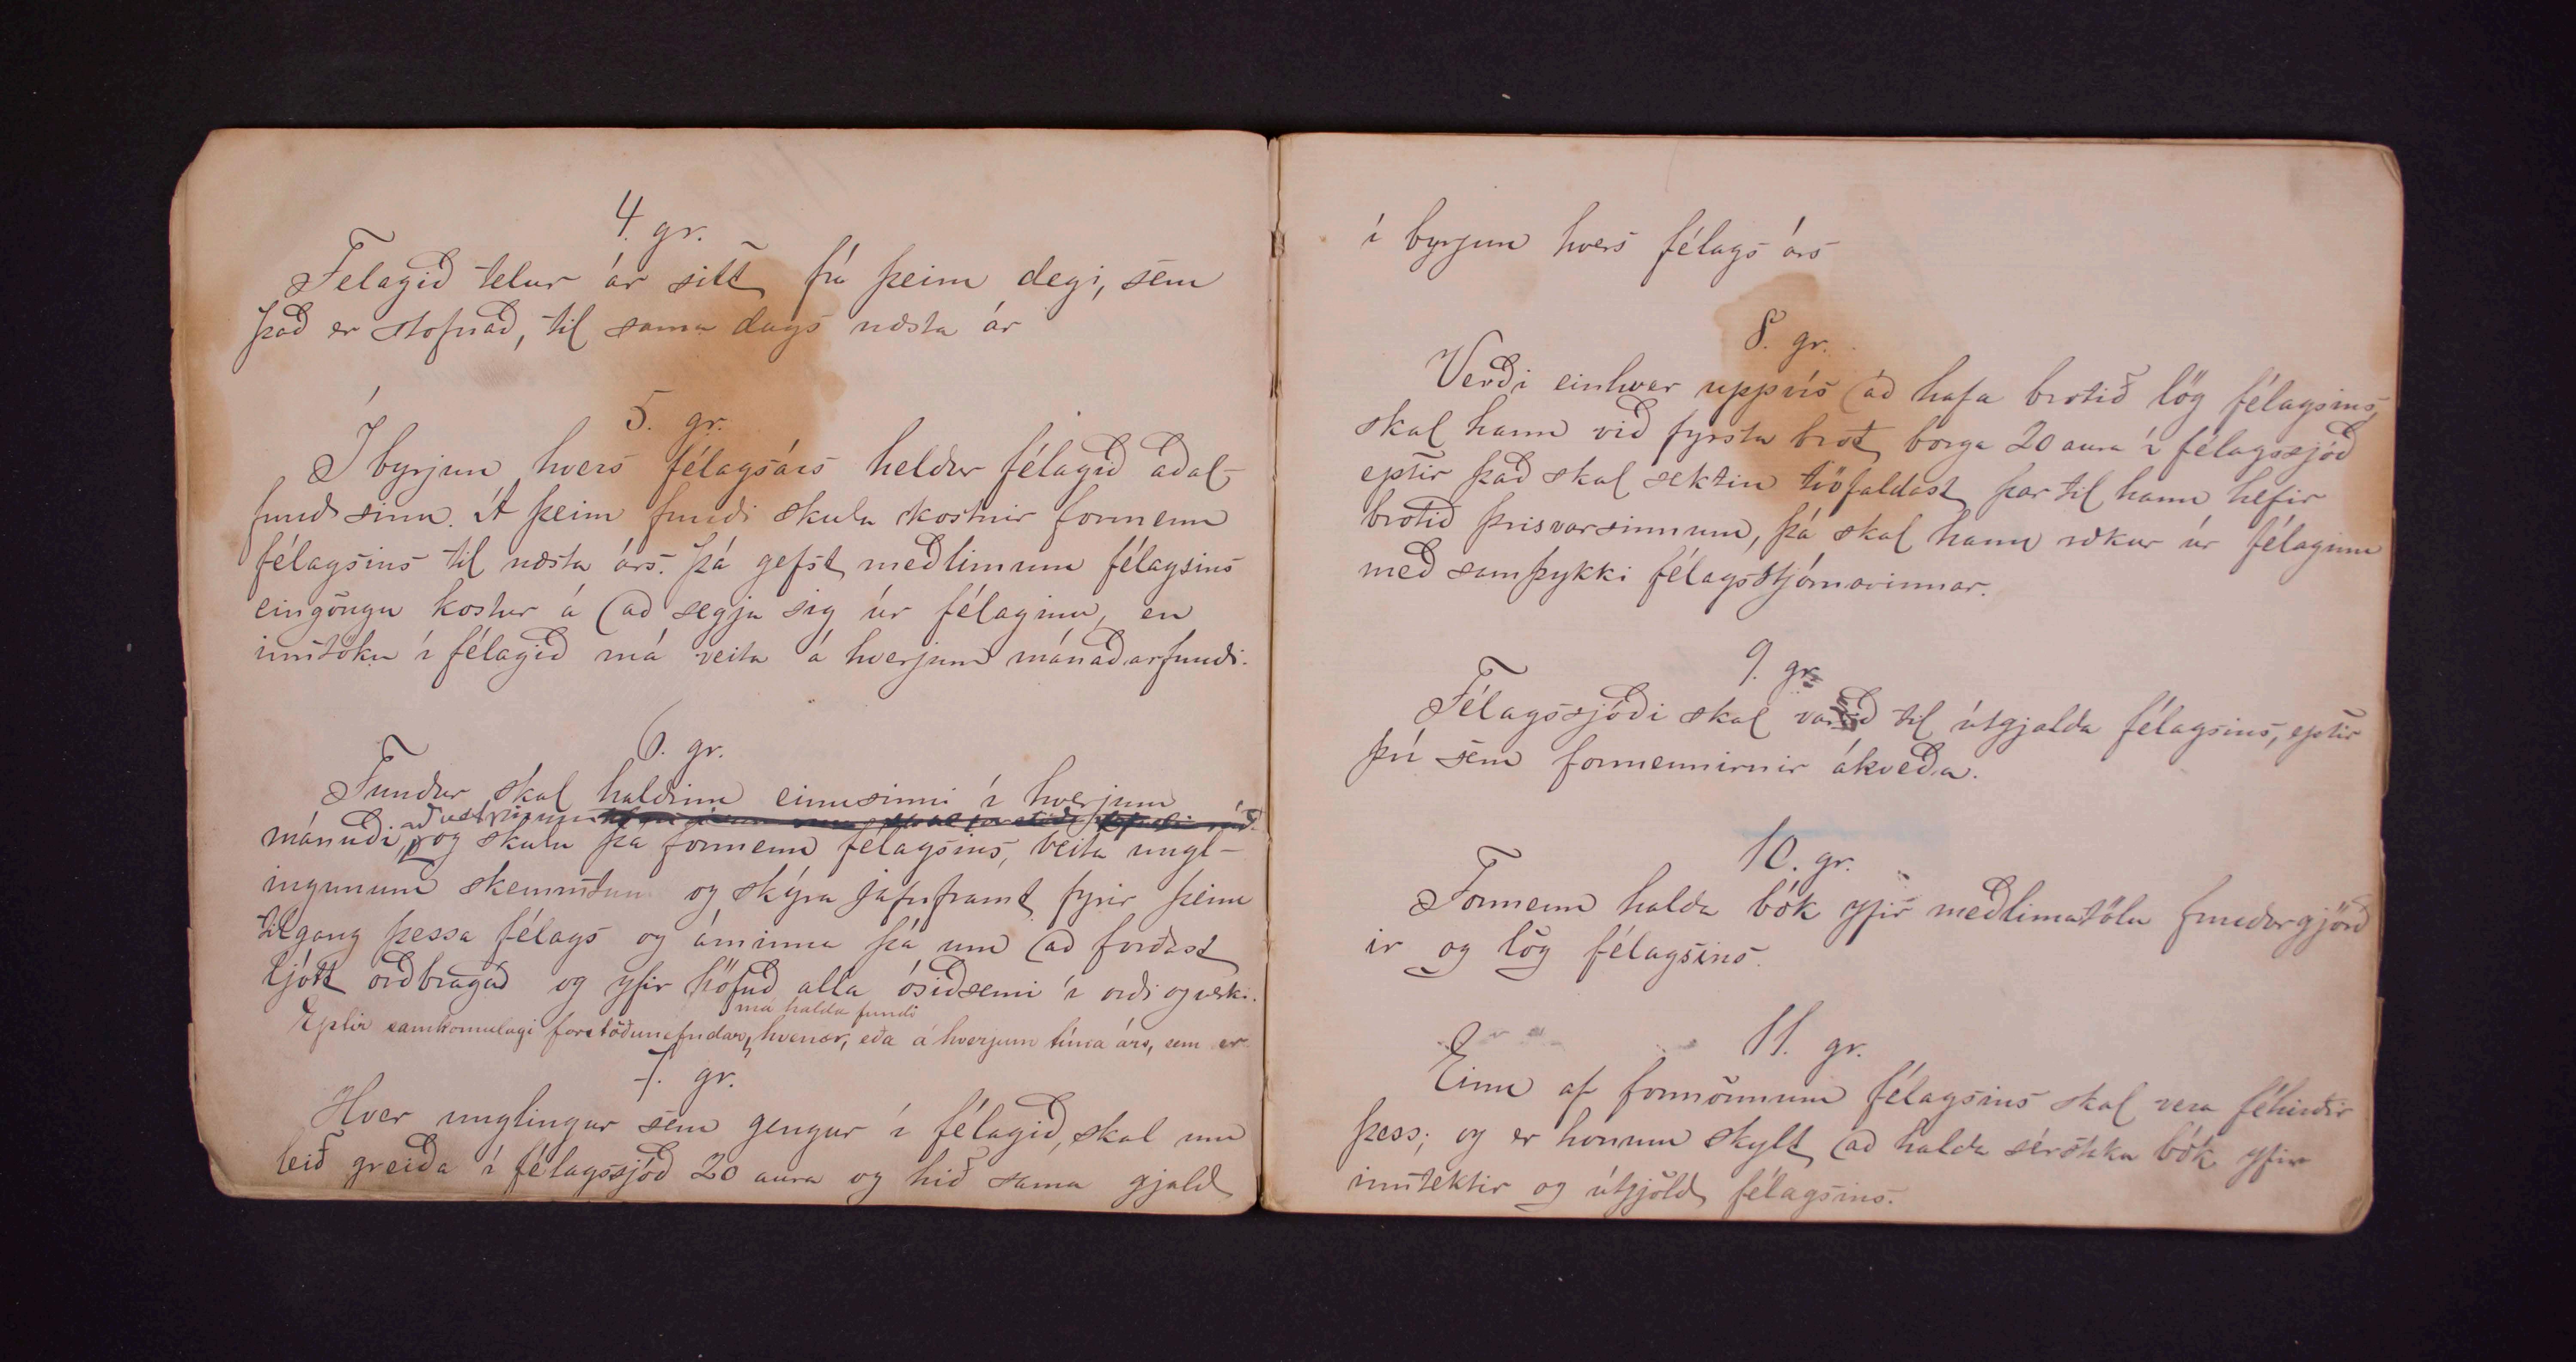 4. gr.
Felagið telur ár sitt frá þeim degi, sem
það er stofnað, til sama dags næsta ár
5. gr.
Í byrjun hvers félagsárs heldur félagið aðal-
fund sinn. Á þeim fundi skulu kostnir formenn
félagsins til næsta árs. Þá gefst meðlimum félagsins
eingöngu kostur á að segja sig úr félaginu, en
inntöku í félagið má veita á hverjum mánaðarfundi.
6. gr.
Fundur skal haldinn einusinni í hverjum
að vetrinum
mánuði, og skulu þá formenn félagsins, veita ungl-
ingunum skemmtun og skýra jafnframt fyrir þeim
tilgang þessa félags og áminna þá um að forðast
ljótt orðbragð og yfir höfuð alla ósiðsemi í orði og verki.
má halda fundi
Eptir samkomulagi forstöðunefndar, hvenær, eða á hverjum tíma árs, sem er
7. gr.
Hver unglingur sem gengur í félagið, skal um
leið greiða í félagssjóð 20 aura og hið sama gjald
í byrjun hvers félags árs
8. gr.
Verði einhver uppvís að hafa brotið lög félagsins,
skal hann við fyrsta brot borga 20 aura í félagssjóð
eptir það skal sektin tvöfaldast þar til hann hefir
brotið þrisvarsinnum, þá skal hann rækur úr félaginu
með samþykki félagsstjórnarinnar.
9. gr.
Félagssjóði skal varið til útgjalda félagsins, eptir
því sem formennirnir ákveða.
10. gr.
Formenn halda bók yfir meðlimatölu fundargjörð
ir og lög félagsins.
11. gr.
Einn af formönnum félagsins skal vera féhirðir
þess; og er honum skylt að halda sérstaka bók yfir
inntektir og útgjöld félagsins.